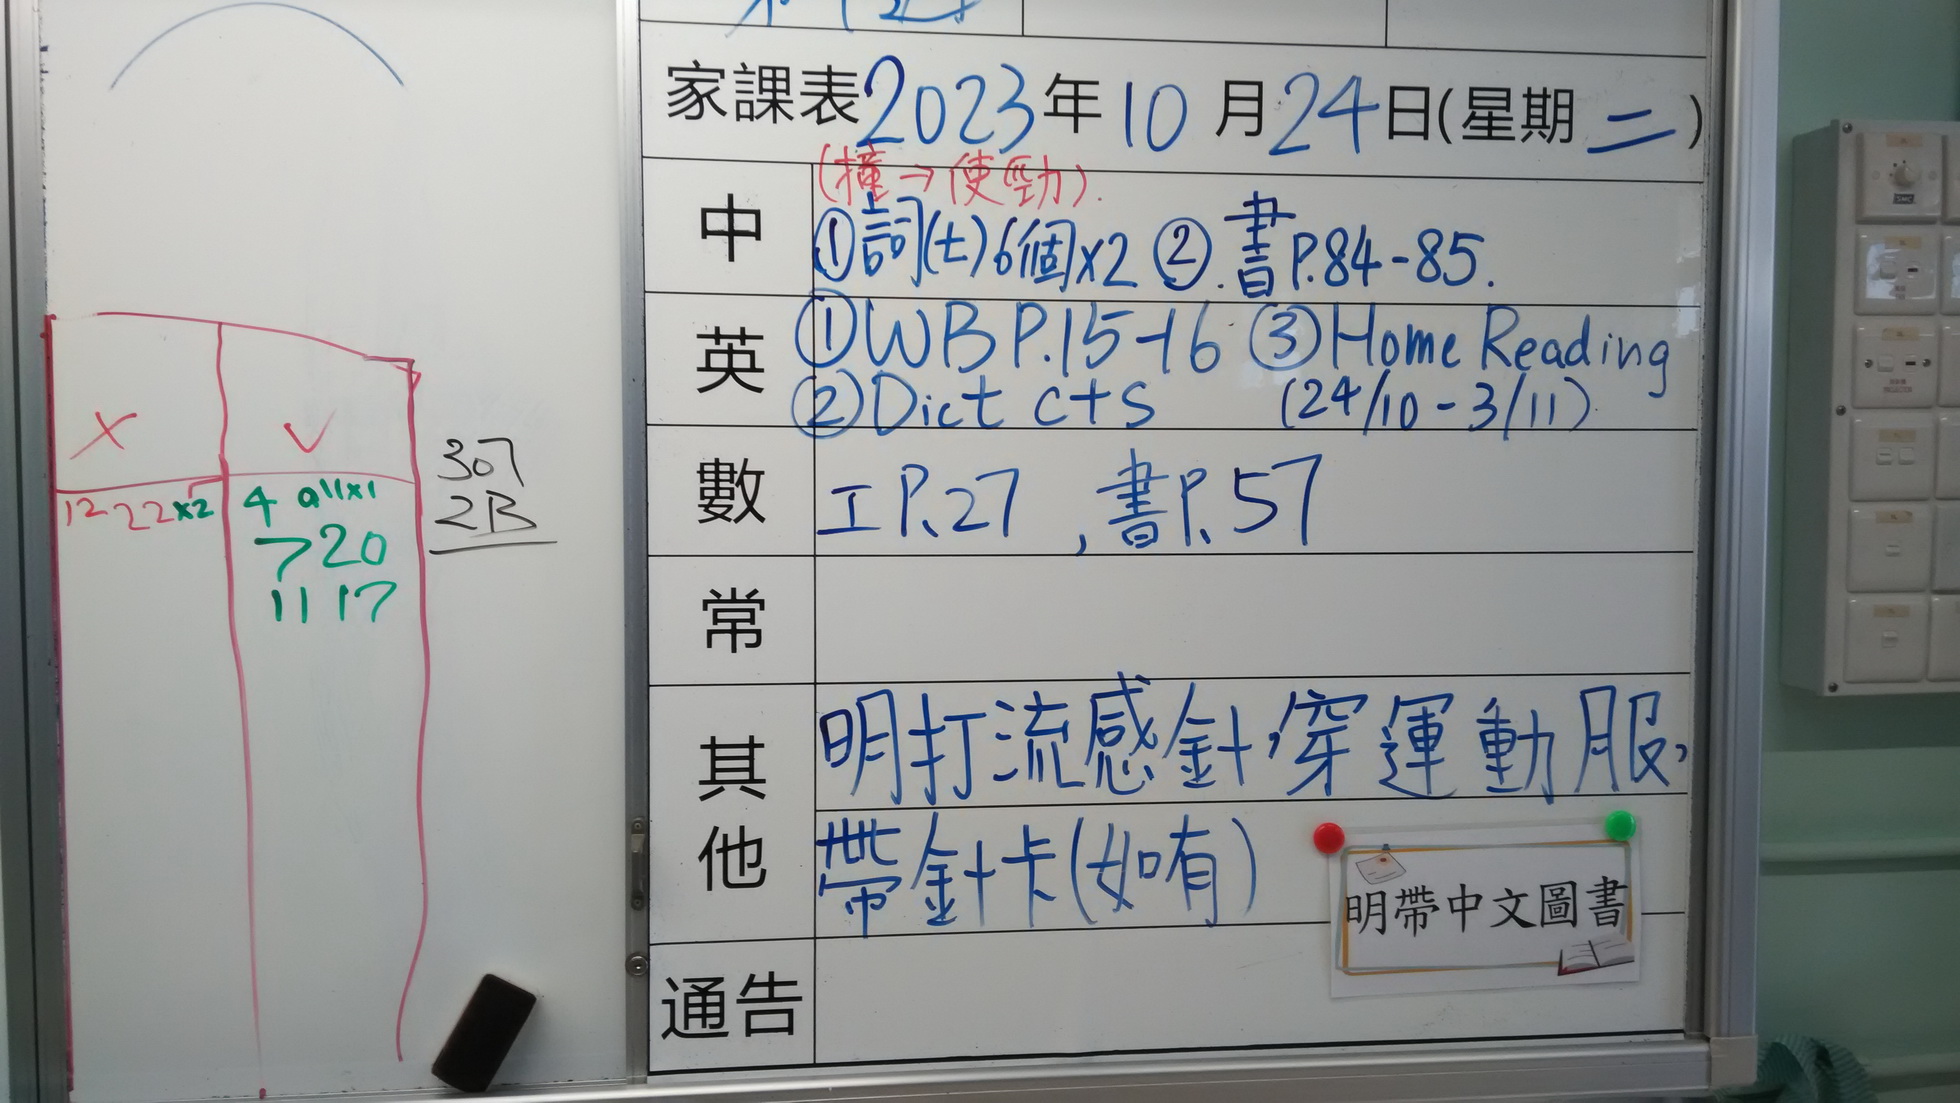 X V
12 22 x2 4 all x1
7 20
11 17
307
2B
家課表2023年10月24日(星期二)
(撞→使勁).
中 ①詞(七)6個x2 ②.書P.84-85.
英 ①WB P.15-16 ③Home Reading
②Dict C+S (24/10-3/11).
數 工P.27 , 書P.57
常
其他 明打流感針,穿運動服,
帶針卡(如有)
明帶中文圖書
通告